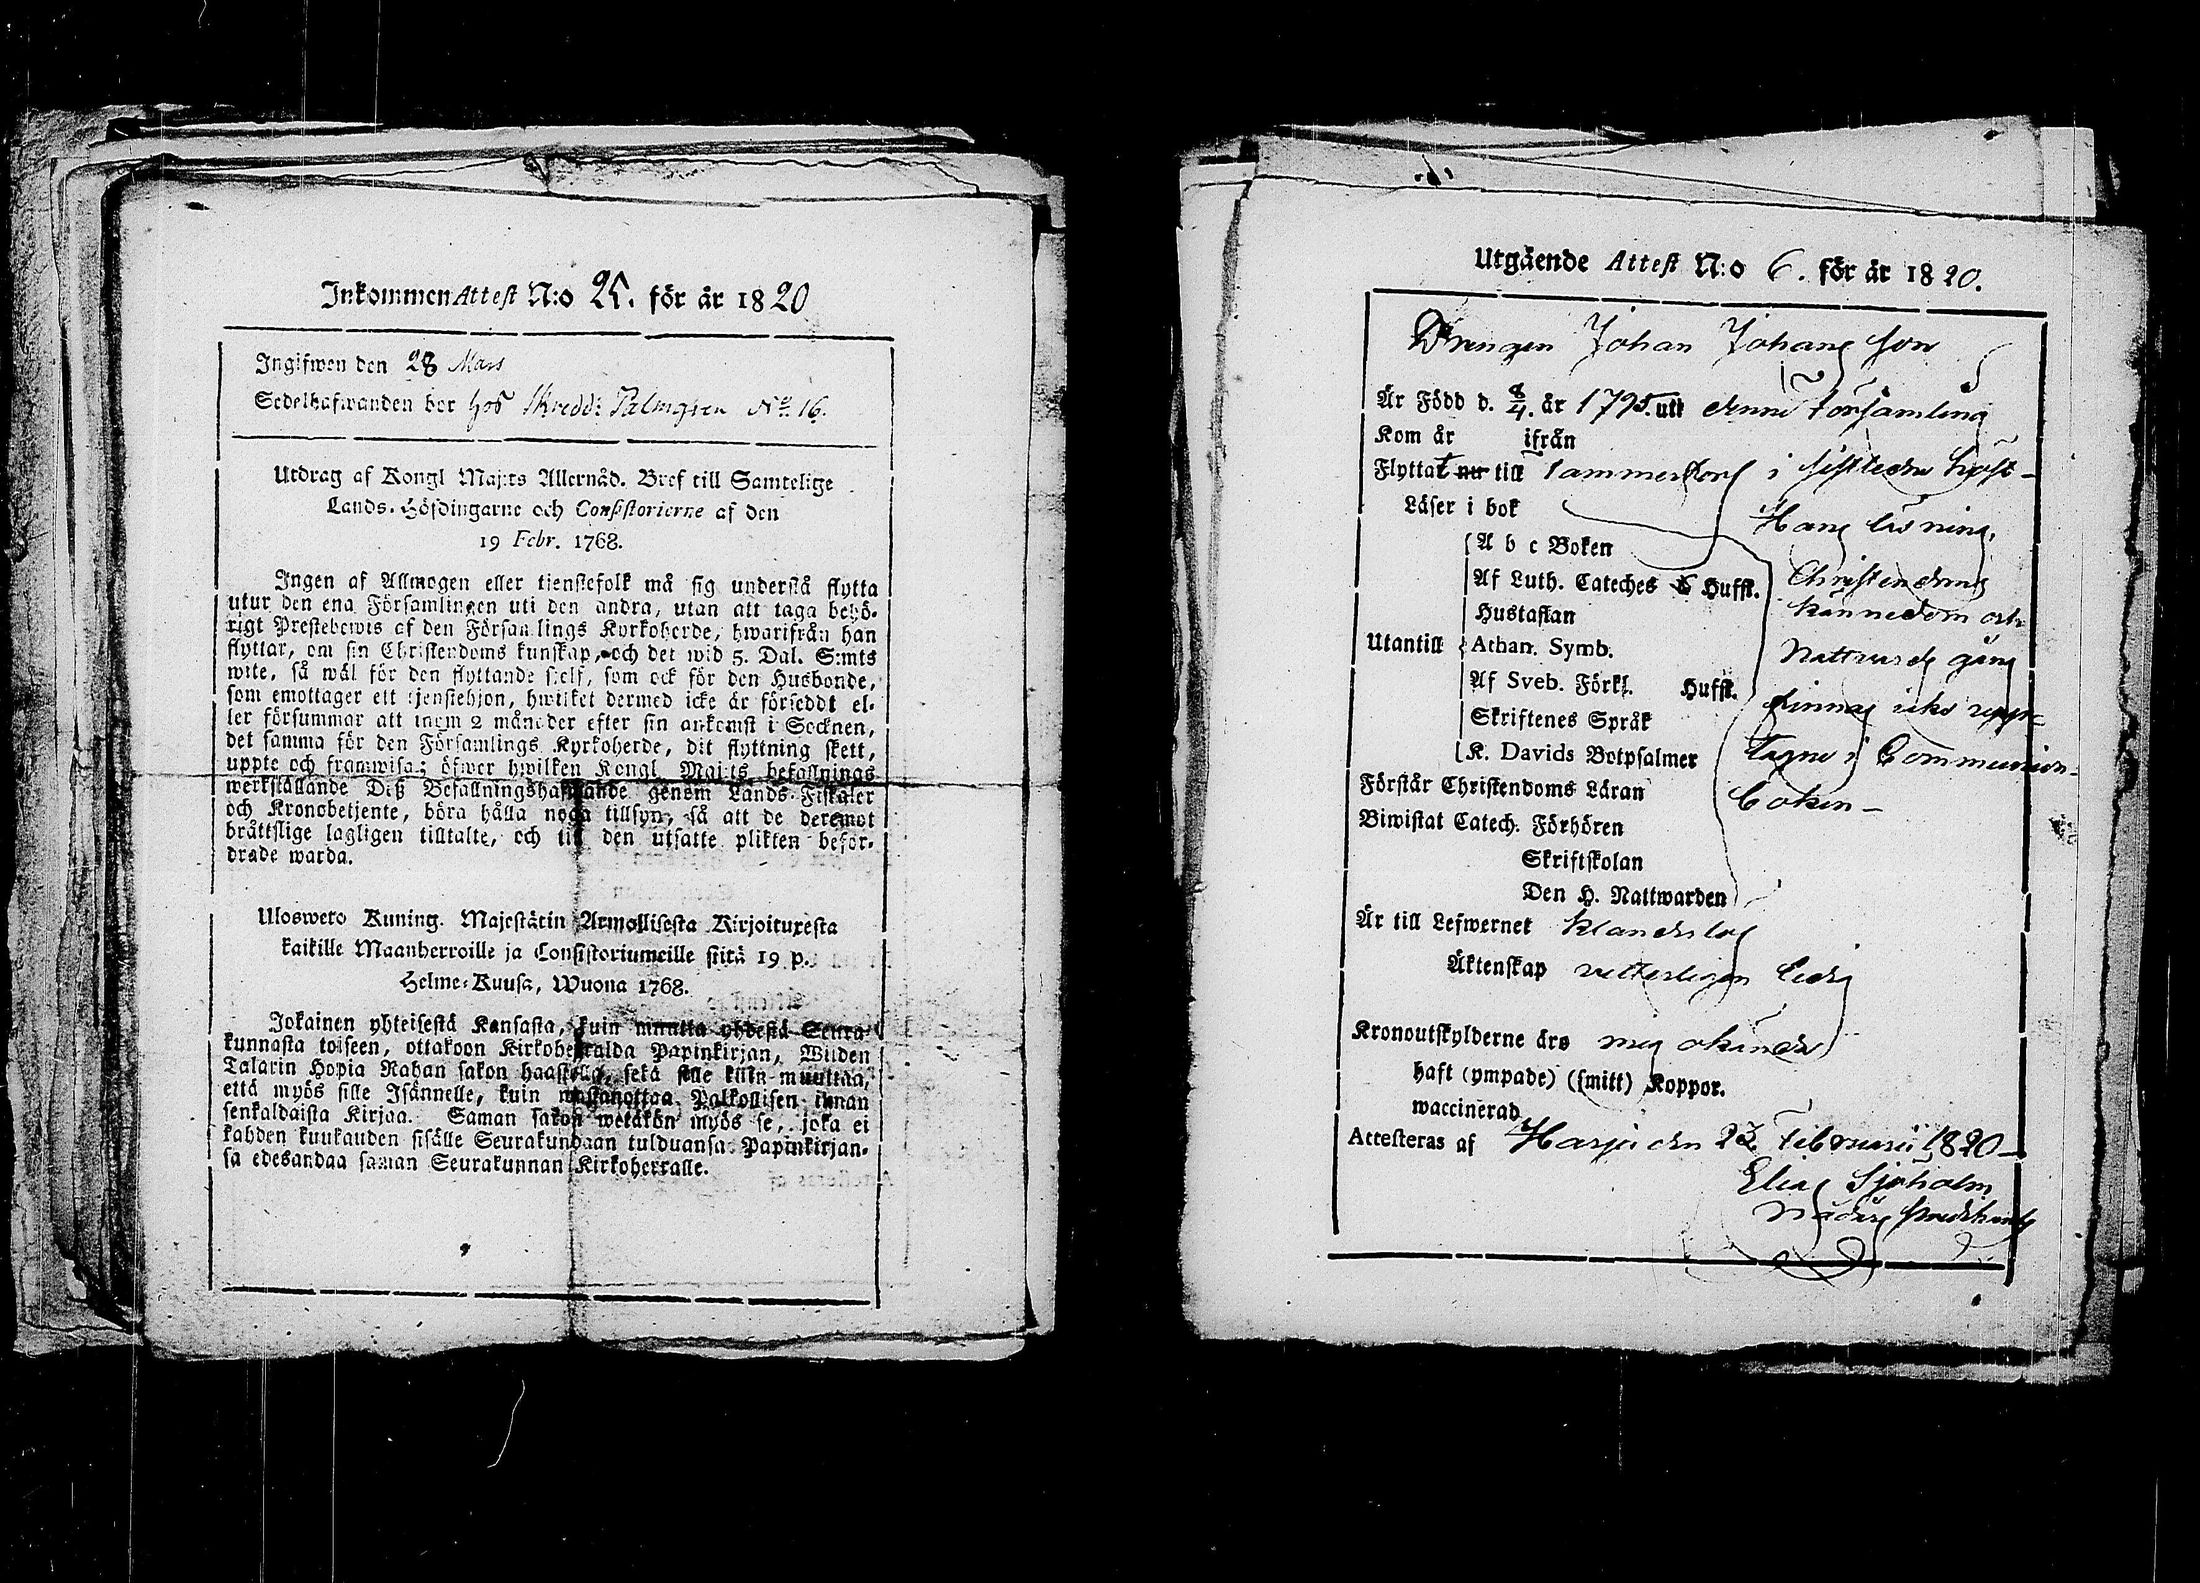 Inkommen Attest N:o 25. för år 1820
Ingifwen den 28 Mars
Sedelhafwanden bor hos Skredd: Palmgren No. 16.
Utdrag af Kongl Maj:ts Allernåd. Bref till Samtelige
Lands-Höfdingarne och Consistorierne af den
19 Febr. 1768.
Ingen af Allmogen eller tienstefolk må sig understå flytta
utur den ena Församlingen uti den andra, utan att taga behö-
rigt Prestebewis af den Församlings Kyrkoherde, hwarifrån han
flyttar, om sin Christendoms kunskap, och det wid 5. Dal. S:mts
wite, så wäl för den flyttande sielf, som ock för den Husbonde,
som emottager ett tjenstehjon, hwilket dermed icke är försedt el-
ler försummar att inom 2 månader efter sin ankomst i Socknen,
det samma för den Församlings Kyrkoherde, dit flyttning skett,
uppte och framwisa; öfwer hwilken Kongl Maj:ts befallnings
werkställande Deß Befallningshafwande genom Lands-Fiskaler
och Kronobetjente, böra hålla noga tillsyn, så att de deremot
bråttslige lagligen tilltalte, och till den utsatte plikten beför-
drade warda.
Ulosweto Kuning. Majestätin Armollisesta Kirjoituxesta
kaikille Maanherroille ja Consistoriumeille siitä 19 p.
Helme-Kuusa, Wuona 1768.
Jokainen yhteisestä Kansasta, kuin muutta yhdestä Seura-
kunnasta toiseen, ottakoon Kirkoherralda Papinkirjan, Wiiden
Talarin Hopia Rahan sakon haastolla, sekä sille kuin muuttaa,
että myös sille Isännelle, kuin wastanottaa Palkollisen ilman
senkaldaista Kirjaa. Saman sakon wetäkön myös se, joka ei
kahden kuukauden sisälle Seurakundaan tulduansa Papinkirjan-
sa edesandaa saman Seurakunnan Kirkoherralle.
Utgående Attest N:o 6. för år 1820.
Drengen Johan Johans son
Är Född d. 8/4. år 1795. uti denne Församling
Kom år ifrån
Flyttat nu till Tammerfors i sistledne höst-
Läser i bok Hans läsning,
A b c Boken
Af Luth. Cateches Hufst. Christendoms
Hustaflan kännedom och
Utantill Athan. Symb. Nattvards gång
Af Sveb. Förkl. Hufst. finnas icke upp-
Skriftenes Språk
K. Davids Botpsalmer tagne i Communion-
Förstår Christendoms Läran boken-
Biwistat Catech. Förhören
Skriftskolan
Den H. Nattwarden
Är till Lefwernet klanderlös
Äktenskap vetterligen ledig
Kronoutskylderne äro mig okände
haft (ympade) (smitt) Koppor.
waccinerad
Attesteras af Harju den 23. Februarii 1820-
Elias Sjöholm